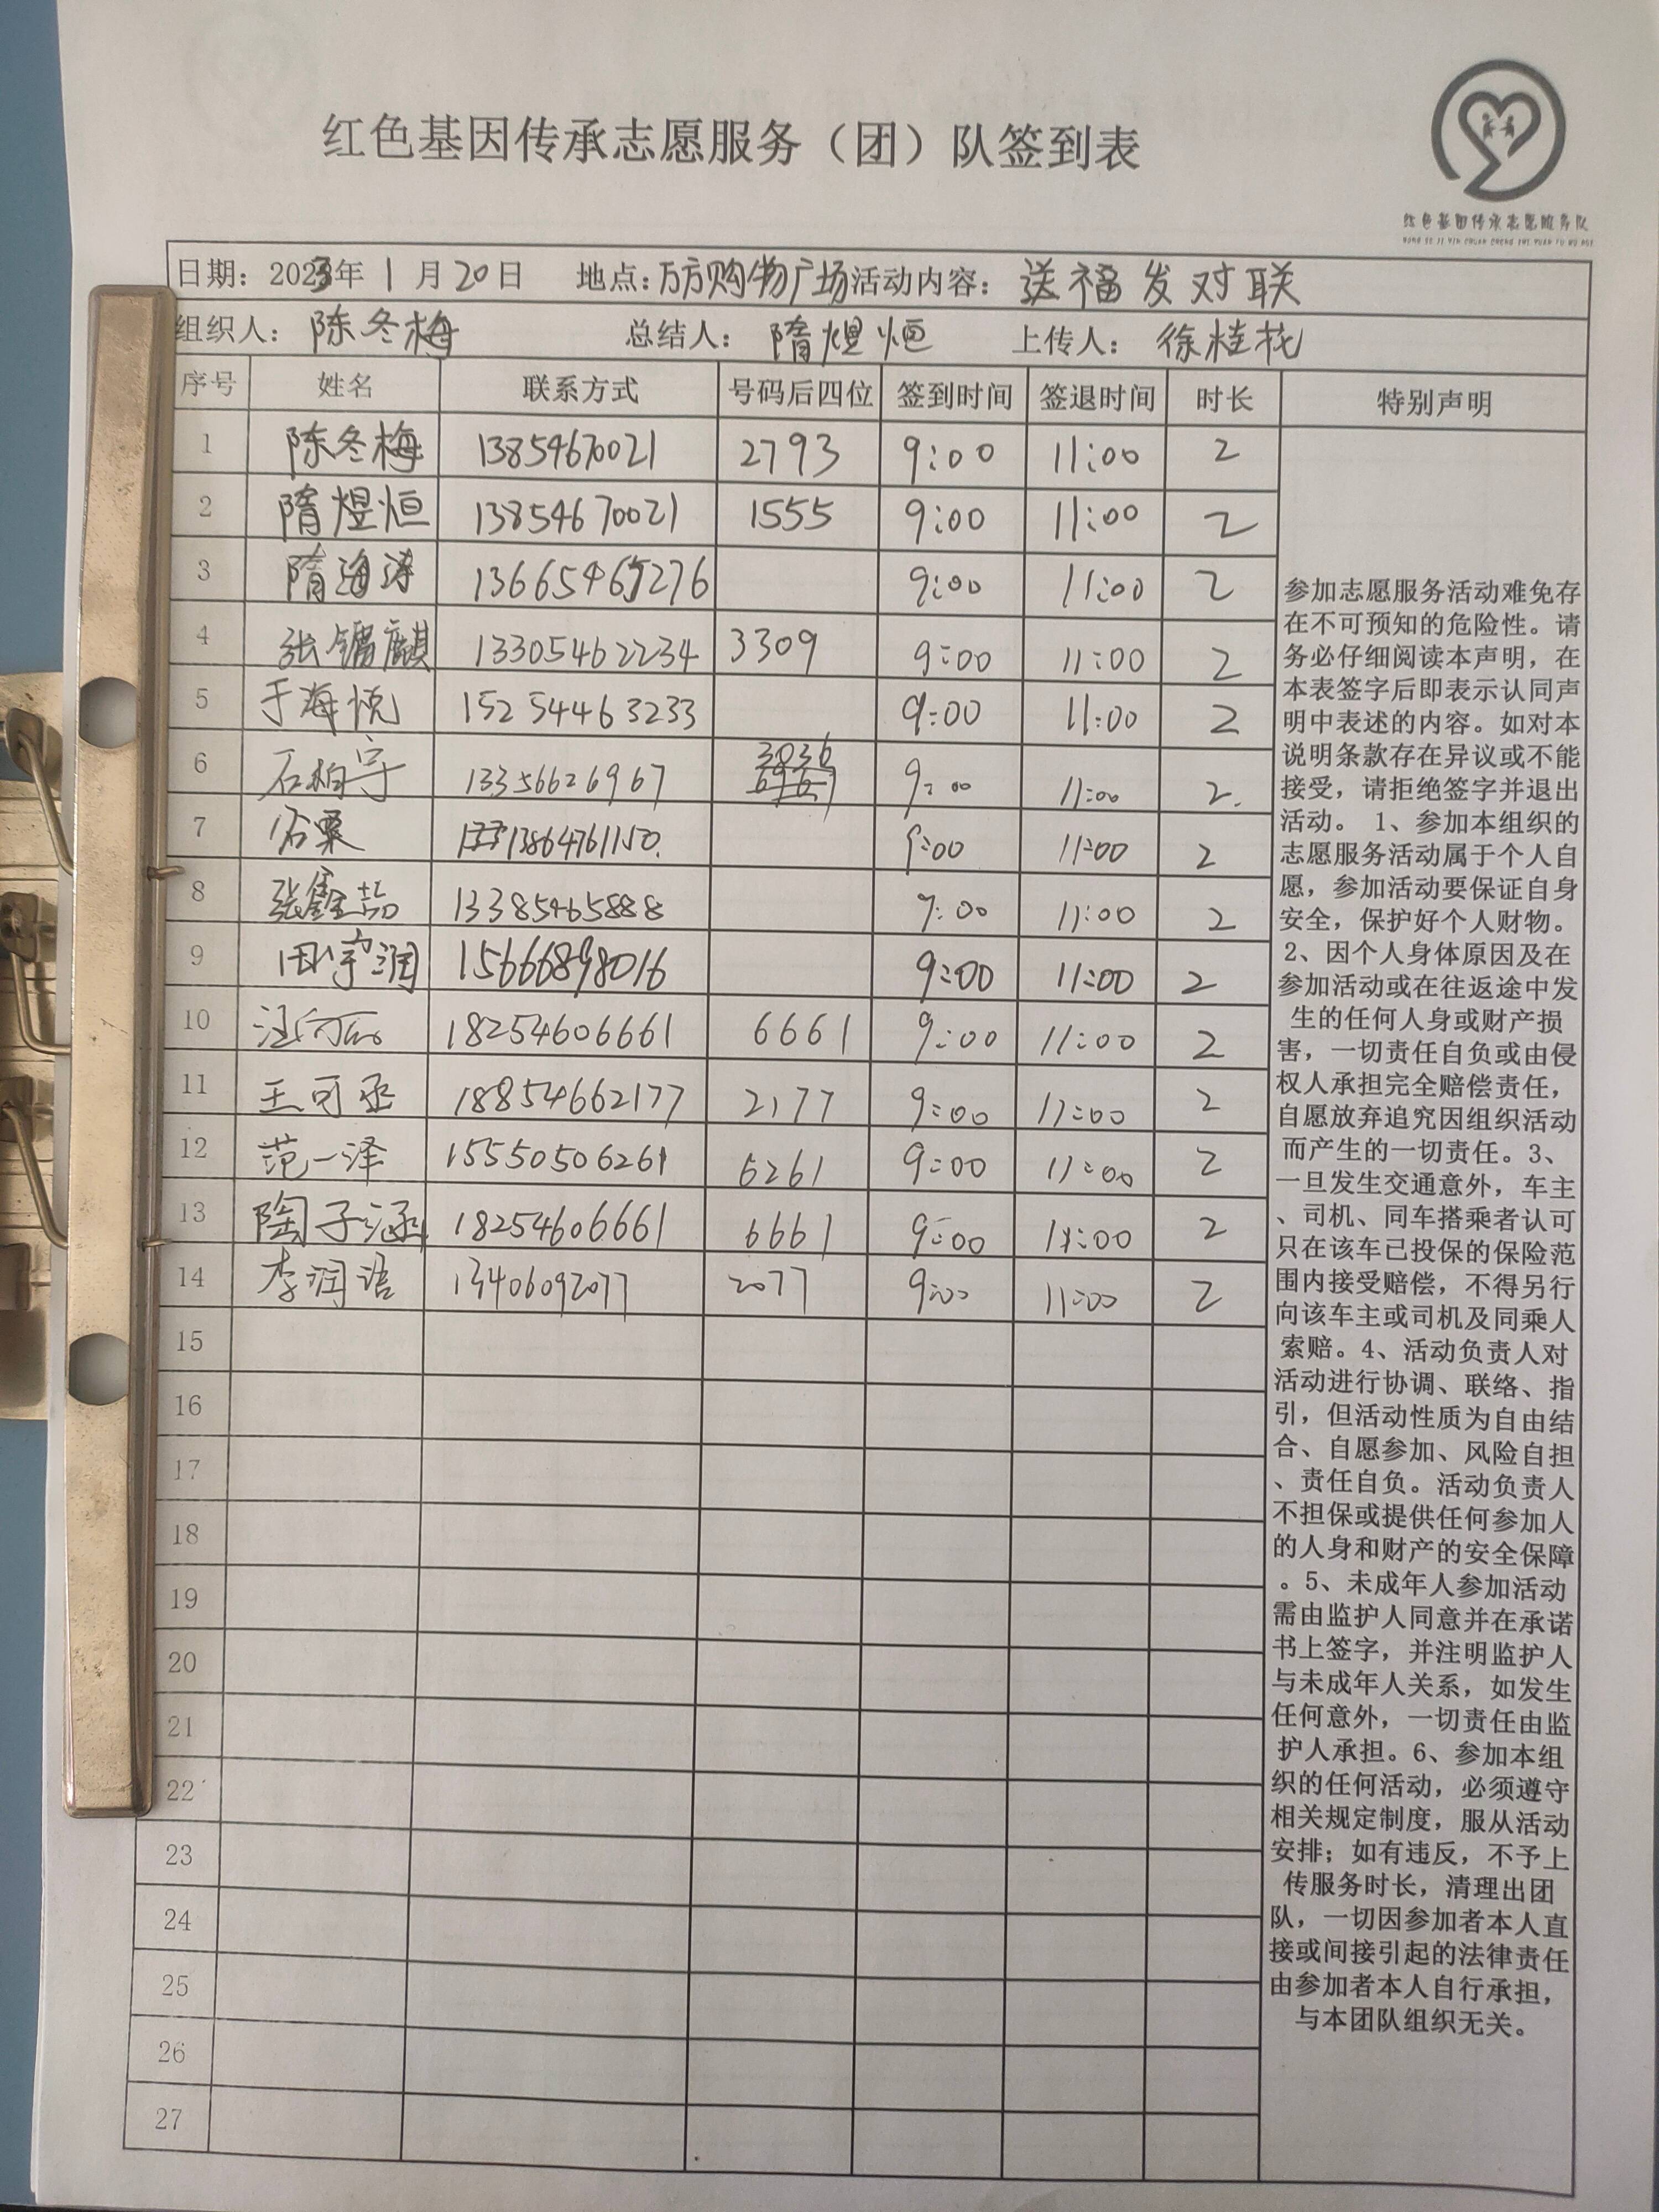 红色基因传承志愿服务（团）队签到表
红色基因传承志愿服务队
HONG SE JI YIN CHUAN CHENG ZHI YUAN FU WU DUI
日期：2023年 1 月 20 日 地点：万方购物广场 活动内容：送福发对联
组织人：陈冬梅 总结人：隋煜恒 上传人：徐桂花
序号 姓名 联系方式 号码后四位 签到时间 签退时间 时长 特别声明
1 陈冬梅 13854670021 2793 9:00 11:00 2
2 隋煜恒 13854670021 1555 9:00 11:00 2
3 隋海涛 13665465276 9:00 11:00 2
4 张 麒 13305462234 3309 9:00 11:00 2
5 于海悦 152 54463233 9:00 11:00 2
6 石柏宇 13356626967 3036 9:00 11:00 2
7 13864761150 9:00 11:00 2
8 张鑫喆 13385465888 9:00 11:00 2
9 田宇润 15666898016 9:00 11:00 2
10 汪 18254606661 6661 9:00 11:00 2
11 王可丞 18854662177 2177 9:00 11:00 2
12 范一泽 15550506261 6261 9:00 11:00 2
13 陶子涵 18254606661 6661 9:00 11:00 2
14 李润语 13406092077 2077 9:00 11:00 2
15
16
17
18
19
20
21
22
23
24
25
26
27
参加志愿服务活动难免存
在不可预知的危险性。请
务必仔细阅读本声明，在
本表签字后即表示认同声
明中表述的内容。如对本
说明条款存在异议或不能
接受，请拒绝签字并退出
活动。 1、参加本组织的
志愿服务活动属于个人自
愿，参加活动要保证自身
安全，保护好个人财物。
2、因个人身体原因及在
参加活动或在往返途中发
生的任何人身或财产损
害，一切责任自负或由侵
权人承担完全赔偿责任，
自愿放弃追究因组织活动
而产生的一切责任。3、
一旦发生交通意外，车主
、司机、同车搭乘者认可
只在该车已投保的保险范
围内接受赔偿，不得另行
向该车主或司机及同乘人
索赔。4、活动负责人对
活动进行协调、联络、指
引，但活动性质为自由结
合、自愿参加、风险自担
、责任自负。活动负责人
不担保或提供任何参加人
的人身和财产的安全保障
。5、未成年人参加活动
需由监护人同意并在承诺
书上签字，并注明监护人
与未成年人关系，如发生
任何意外，一切责任由监
护人承担。6、参加本组
织的任何活动，必须遵守
相关规定制度，服从活动
安排；如有违反，不予上
传服务时长，清理出团
队，一切因参加者本人直
接或间接引起的法律责任
由参加者本人自行承担，
与本团队组织无关。